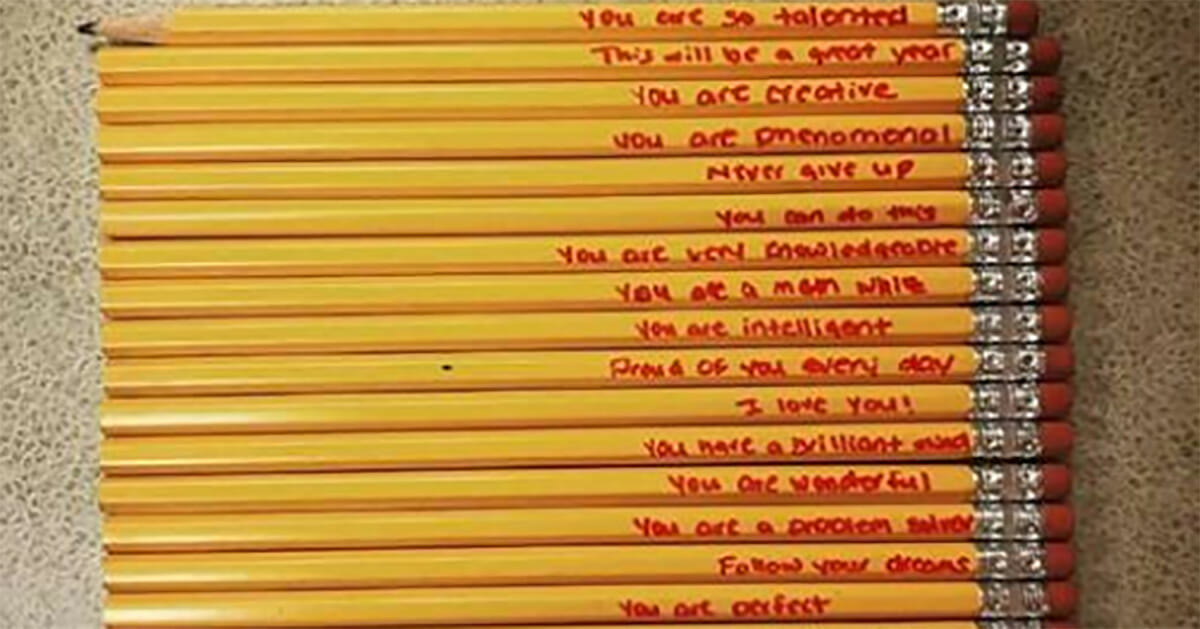 You are so talented
This will be a great year
You are creative
you are phenomenal
Never give up
you can do this
You are very knowledgeable
You are a math whiz
You are intelligent
Proud of you every day
I love you!
You have a brilliant mind
You are wonderful
You are a problem solver
Follow your dreams
You are perfect